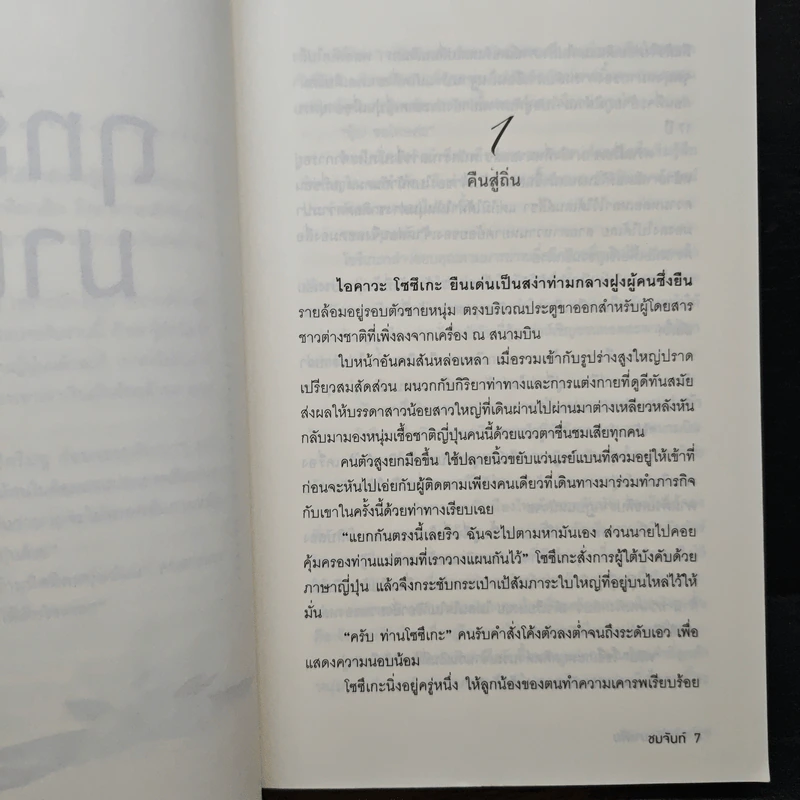 ฤทธิ
มา
1
คืนสู่ถิ่น
ไอคาวะ โซซึเกะ ยืนเด่นเป็นสง่าท่ามกลางฝูงผู้คนซึ่งยืน
รายล้อมอยู่รอบตัวชายหนุ่ม ตรงบริเวณประตูขาออกสำหรับผู้โดยสาร
ชาวต่างชาติที่เพิ่งลงจากเครื่อง ณ สนามบิน
ใบหน้าอันคมสันหล่อเหลา เมื่อรวมเข้ากับรูปร่างสูงใหญ่ปราด
เปรียวสมสัดส่วน ผนวกกับกิริยาท่าทางและการแต่งกายที่ดูดีทันสมัย
ส่งผลให้บรรดาสาวน้อยสาวใหญ่ที่เดินผ่านไปผ่านมาต่างเหลียวหลังหัน
กลับมามองหนุ่มเชื้อชาติญี่ปุ่นคนนี้ด้วยแววตาชื่นชมเสียทุกคน
คนตัวสูงยกมือขึ้น ใช้ปลายนิ้วขยับแว่นเรย์แบนที่สวมอยู่ให้เข้าที่
ก่อนจะหันไปเอ่ยกับผู้ติดตามเพียงคนเดียวที่เดินทางมาร่วมทำภารกิจ
กับเขาในครั้งนี้ด้วยท่าทางเรียบเฉย
“แยกกันตรงนี้เลยริว ฉันจะไปตามหามันเอง ส่วนนายไปคอย
คุ้มครองท่านแม่ตามที่เราวางแผนกันไว้” โซซึเกะสั่งการผู้ใต้บังคับด้วย
ภาษาญี่ปุ่น แล้วจึงกระชับกระเป๋าเป้สัมภาระใบใหญ่ที่อยู่บนไหล่ไว้ให้
มั่น
“ครับ ท่านโซซึเกะ” คนรับคำสั่งโค้งตัวลงต่ำจนถึงระดับเอว เพื่อ
แสดงความนอบน้อม
โซซึเกะนิ่งอยู่ครู่หนึ่ง ให้ลูกน้องของตนทำความเคารพเรียบร้อย
ชมจันท์ 7